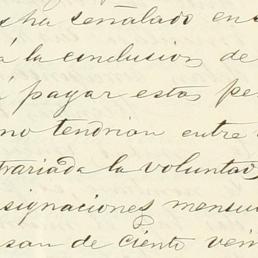 s ha señalado en s
á la conclusion de
á pagar estas pe
no tendrian entre
trariada la voluntad,
signaciones mensu
san de ciento vein